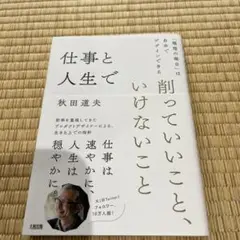 「機嫌の良さ」は
自分で
デザインできる
削っていいこと、
いけないこと
仕事と
人生で
秋田道夫
機嫌を重視してきた
プロダクトデザイナーによる、
生きる上での指針
仕事は
速やかに、
人生は
穏やかに。
大人気Twitter!
フォロワー
10万人超!
大和出版